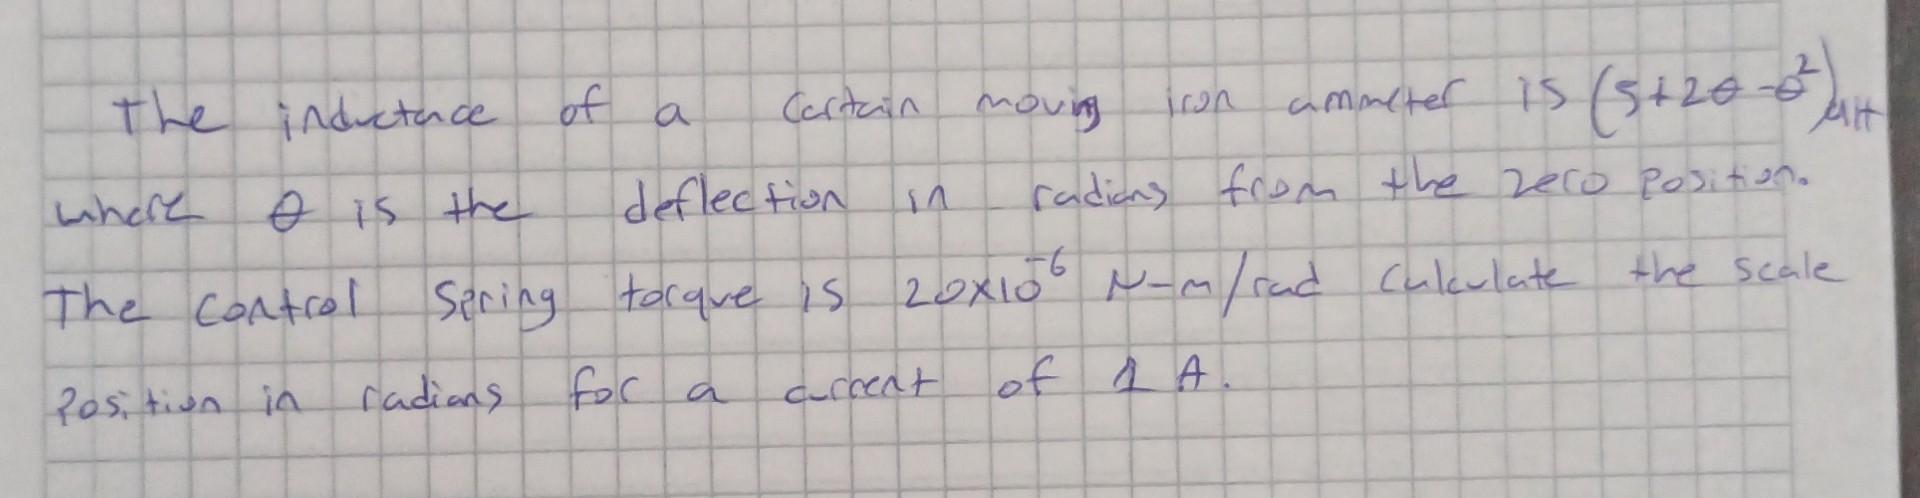 The inductance of a certain moving iron ammeter is (5+2θ-θ²)μH
where θ is the deflection in radians from the zero position.
The control spring torque is 20x10⁻⁶ N-m/rad calculate the scale
position in radians for a current of 1 A.